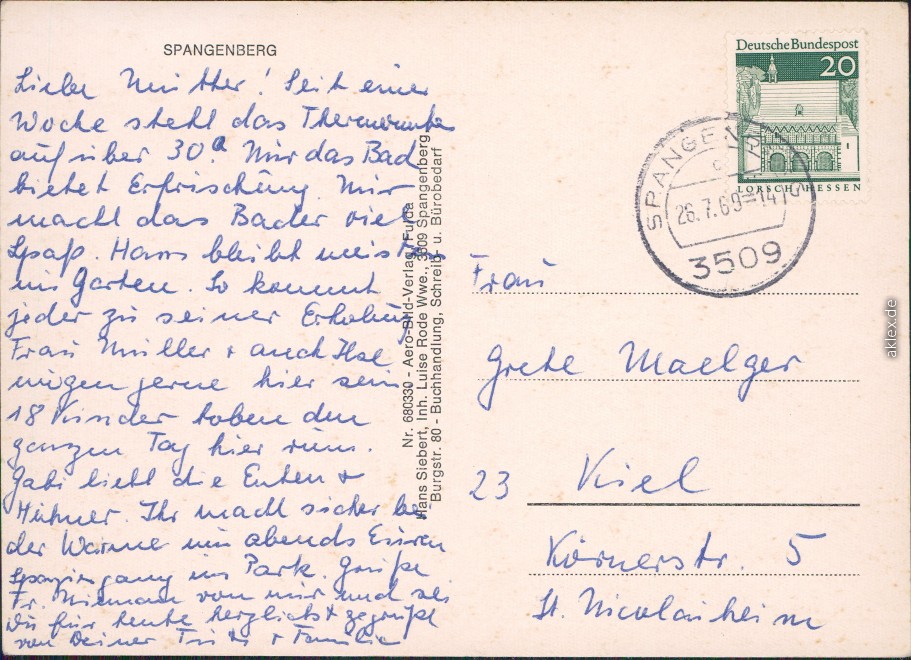 SPANGENBERG
Liebe Mutter! Seit einer
Woche steht das Thermometer
auf über 30°. Nur das Bad
bietet Erfrischung. Mir
macht das Baden viel
Spaß. Hans bleibt meist
im Garten. So kommt
jeder zu seiner Erholung
Frau Müller + auch Ilse
mögen gerne hier sein
18 Kinder toben den
ganzen Tag hier rum.
Gabi liebt die Enten +
Hühner. Ihr macht sicher bei
der Wärme nur abends Euren
Spaziergang im Park. Grüße
Fr. Niemann von mir und sei
Du für heute herzlichst gegrüßt
von Deiner + Familie
Nr. 680330 - Aero-Bild-Verlag, Fulda
Hans Siebert, Inh. Luise Rode Wwe., 3509 Spangenberg,
Burgstr. 80 - Buchhandlung, Schreib- u. Bürobedarf
Deutsche Bundespost
20
LORSCH/HESSEN
SPANGENBERG
26.7.69-14
3509
Frau
Grete Maelger
23 Kiel
Körnerstr. 5
St. Nicolaiheim
aklex.de